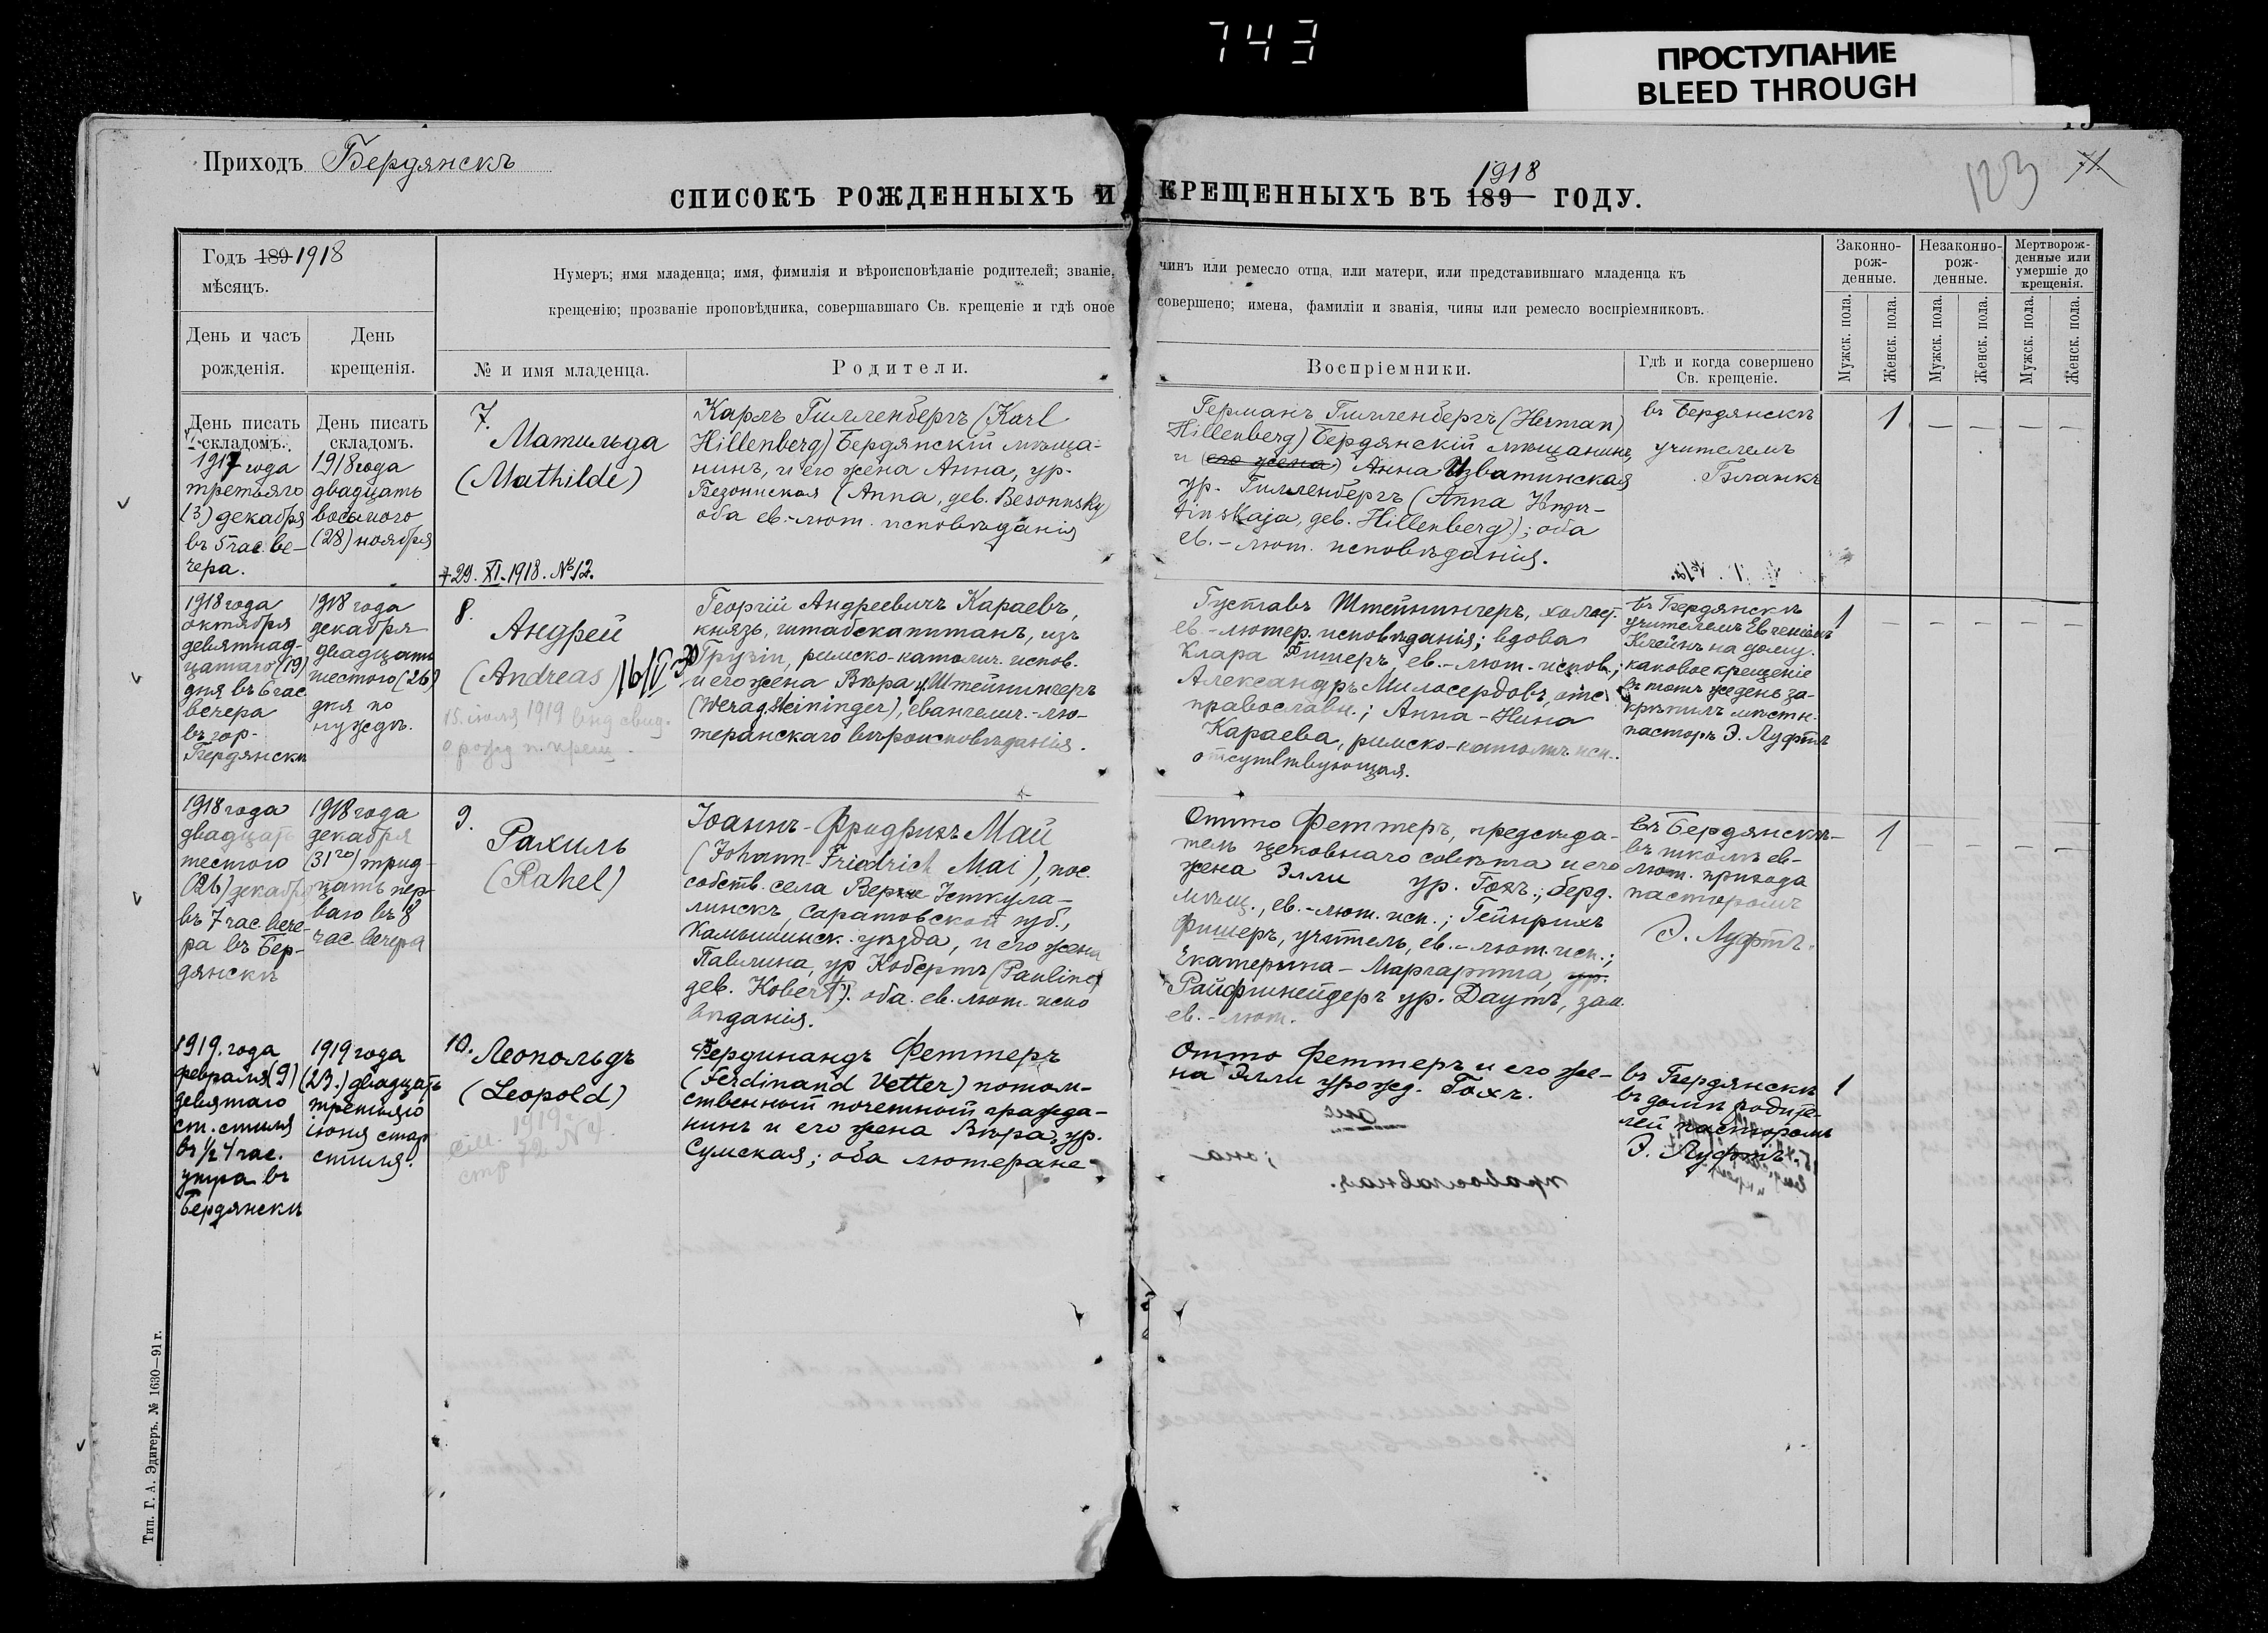 743
ПРОСТУПАНИЕ
BLEED THROUGH
Приходъ Бердянскъ
1918
123 71
СПИСОКЪ РОЖДЕННЫХЪ И КРЕЩЕННЫХЪ ВЪ 189 ГОДУ.
Годъ 189 1918
мѣсяцъ.
День и часъ
рожденія.
День
крещенія.
Нумеръ; имя младенца; имя, фимилія и вѣроисповѣданіе родителей; званіе, чинъ или ремесло отца, или матери, или представившаго младенца къ
крещенію; прозваніе проповѣдника, совершавшаго Св. крещеніе и гдѣ оное совершено; имена, фамиліи и званія, чины или ремесло воспріемниковъ.
№ и имя младенца.
Родители.
Воспріемники.
Гдѣ и когда совершено
Св. крещеніе.
Законно-
рож-
денные.
Незаконно-
рож-
денные.
Мертворож-
денные или
умершіе до
крещенія.
Мужск. пола.
Женск. пола.
Мужск. пола.
Женск. пола.
Мужск. пола.
Женск. пола.
День писать
складомъ.
1917 года
третьяго
(3) декабря
въ 5 час. ве-
чера.
День писать
складомъ.
1918 года
двадцать
восьмого
(28) ноября
7.
Матильда
(Mathilde)
+29. XI. 1918. №12.
Карлъ Гилленбергъ (Karl
Hillenberg) Бердянскій мѣща-
нинъ, и его жена Анна, ур.
Безониская (Anna, geb. Besonnsky)
оба ев.-лют. исповѣданія
Германъ Гилленбергъ (Herman)
Hillenberg) Бердянскій мѣщанинъ,
и (его жена) Анна Изватинская
ур. Гилленбергъ (Anna
tinskaja, geb. Hillenberg); оба
ев.-лют. исповѣданія.
въ Бердянскѣ
учителемъ
Бланкъ
1 — — — —
1918 года
октября
девятнад-
цатаго (19)
дня въ 6 час
вечера
въ гор.
Бердянскѣ
1918 года
декабря
двадцать
шестого (26)
дня по
нуждѣ.
8.
Андрей
(Andreas)
15. іюля 1919 выд свид.
о рожд и крещ.
Георгій Андреевичъ Караевъ,
князь, штабскапитанъ, изъ
Грузіи, римско-католич. испов.
и его жена Вѣра у. Штейнингеръ
(Wera g. Steininger), евангелич.-лю-
теранскаго вѣроисповѣданія.
Густавъ Штейнингеръ, холост.
ев.-лютер. исповѣданія; вдова
Клара ев.-лют. испов.;
Александръ Милосердовъ, отс.
православн.; Анна-Нина
Караева, римско-католич. исп.
отсутствующая.
въ Бердянскѣ
учителемъ Евгеніемъ
Клейнъ на дому.
каковое крещеніе
въ тотъ же день за-
крѣпилъ мѣстн.
пасторъ Э. Луфтъ
1 — — — — —
1918 года
двадцать
шестого
(26) декабр
въ 7 час. вече-
ра въ Бер-
дянскѣ
1918 года
декабря
(31го) трид-
цать пер-
ваго въ 8
час вечера
9.
Рахиль
(Rahel)
Іоаннъ-Фридрихъ Май
(Johann-Friedrich Mai), пос.
собств. села Верхне
линскъ, Саратовской губ.,
Камышинск. уѣзда, и его жена
Павлина, ур Кобертъ (Pauline)
geb. Kobert). оба. ев. лют. испо
вѣданія.
Отто Феттеръ, председа-
тель церковнаго совѣта и его
жена Элли ур. Гохъ.; берд.
мѣщ., ев.-лют. исп.; Гейнрихъ
Фишеръ, учитель, ев.-лют. исп.;
Екатерина-Маргарита, ур.
Райфшнейдеръ ур. Даутъ,
ев.-лют.
въ Бердянскѣ
въ школѣ ев-
лют. прихода
пасторомъ
Э. Луфтъ.
1 — — —
1919. года
февраля (9)
девятаго
ст. стиля
въ ½ 4 час.
утра въ
Бердянскѣ
1919 года
(23.) двадцать
третьяго
іюня стар
стиля.
10.
Леопольдъ
(Leopold)
см. 1919 г.
стр 72. № 4.
Фердинандъ Феттеръ
(Ferdinand Vetter) потом-
ственный почетный гражда-
нинъ и его жена Вѣра, ур.
Сумская; оба лютеране
Отто Феттеръ и его же-
на Элли урожд. Гохъ.
въ Бердянскѣ
въ домѣ родите-
лей пасторомъ
Э. Луфтъ
1
Тип. Г. А. Эдигеръ. № 1630—91 г.